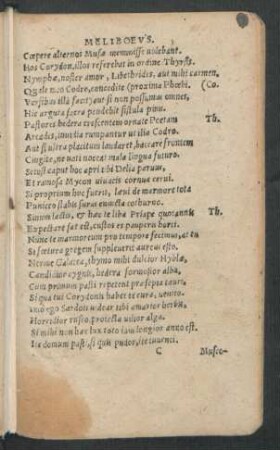 MELIBOEVS.
Cœpere alternos Musæ meminisse uolebant.
Hos Corydon, illos referebat in ordine Thyrsis.
Nymphæ, noster amor, Libethrides, aut mihi carmen,
Quale meo Codro, concedite (proxima Phœbi (Co.
Versibus ille facit) aut si non possumus omnes,
Hic arguta sacra pendebit fistula pinu.
Pastores hedera crescentem ornate Poetam Th.
Arcades, inuidia rumpantur ut ilia Codro.
Aut si ultra placitum laudarit, baccare frontem
Cingite, ne uati noceat mala lingua futuro.
Setosi caput hoc apri tibi Delia paruus,
Et ramosa Mycon uiuacis cornua cerui.
Si proprium hoc fuerit, læui de marmore tota
Puniceo stabis suras euincta cothurno.
Sinum lactis, & hæc te liba Priape quotannis Th.
Expectare sat est, custos es pauperis horti.
Nunc te marmoreum pro tempore fecimus, at tu
Si fœtura gregem suppleuerit aureus esto.
Nerine Galatea, thymo mihi dulcior Hyblæ,
Candidior cygnis, hedera formosior alba,
Cum primum pasti repetent præsepia tauri,
Si qua tui Corydonis habet te cura, uenito.
Imò ego Sardois uidear tibi amarior herbis,
Horridior rusco, proiecta uilior alga.
Si mihi non hæc lux toto iam longior anno est.
Ite domum pasti, si quis pudor, ite iuuenci.
C Musco-